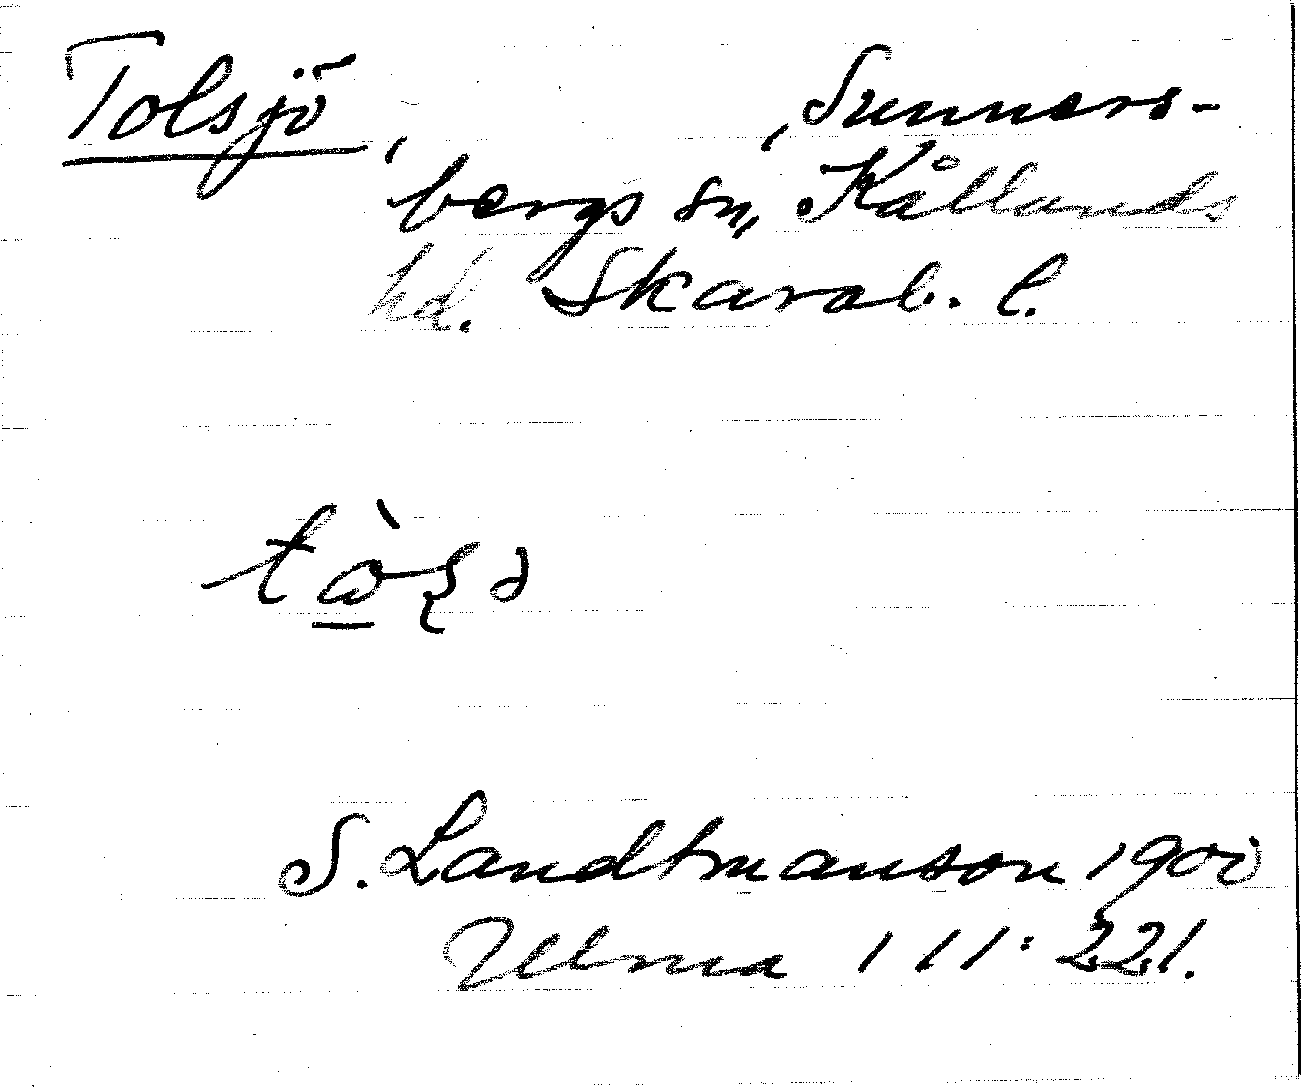 Tolsjö, , Sunners-
bergs sn, Kållands
hd. Skarab. l.
S. Landtmanson 1900
Ulma 111:221.